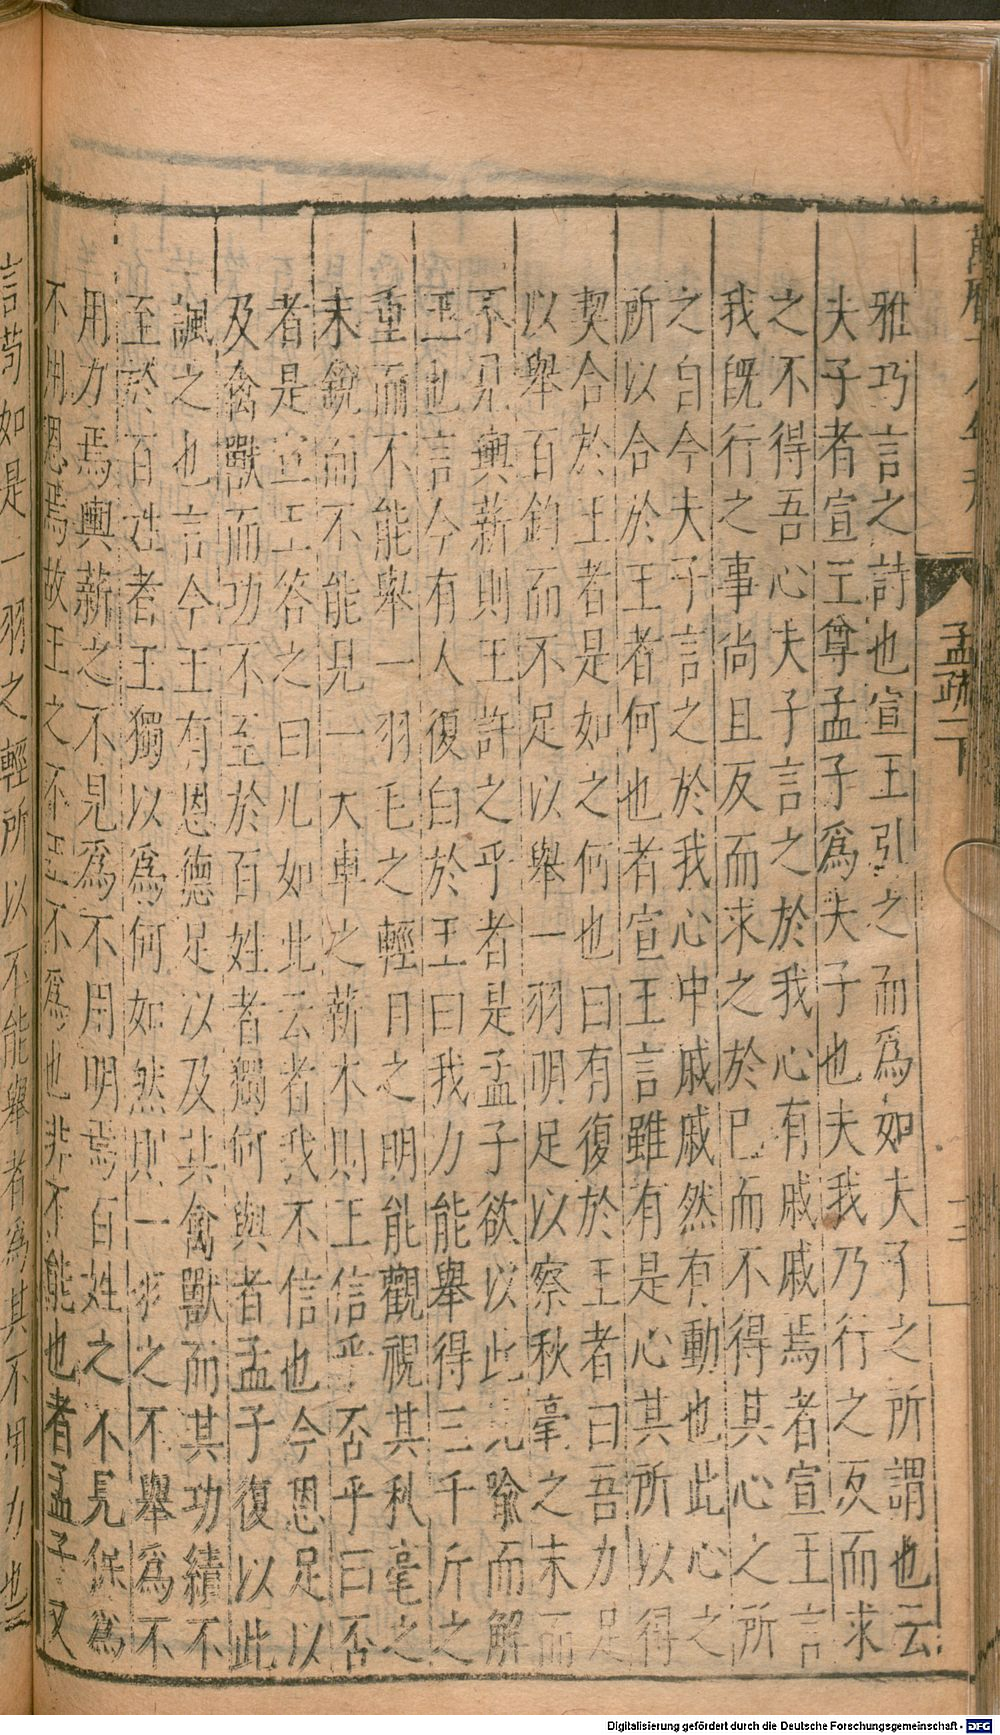 孟疏一下
雅巧言之詩也宣王引之而爲如夫子之所謂也云
夫子者宣王尊孟子爲夫子也夫我乃行之反而求
之不得吾心夫子言之於我心有戚戚焉者宣王言
我旣行之事尚且反而求之於已而不得其心之所
之自今夫子言之於我心中戚戚然有動也此心之
所以合於王者何也者宣王言雖有是心其所以得
契合於王者是如之何也曰有復於王者曰吾力足
以舉百鈞而不足以舉一羽明足以察秋毫之末而
不見輿薪則王許之乎者是孟子欲以此見喻而解
王也言今有人復白於王曰我力能舉得三千斤之
重而不能舉一羽毛之輕目之明能觀視其秋毫之
末銳而不能見一大車之薪木則王信乎否乎曰否
者是宣王答之曰凡如此云者我不信也今恩足以
及禽獸而功不至於百姓者獨何與者孟子復以此
諷之也言今王有恩德足以及其禽獸而其功績不
至於百姓者王獨以爲何如然則一羽之不舉爲不
用力焉輿薪之不見爲不用明焉百姓之不見保爲
不用恩焉故王之不王不爲也非不能也者孟子又
言苟如是一羽之輕所以不能舉者爲其不用力也
Digitalisierung gefördert durch die Deutsche Forschungsgemeinschaft - DFG